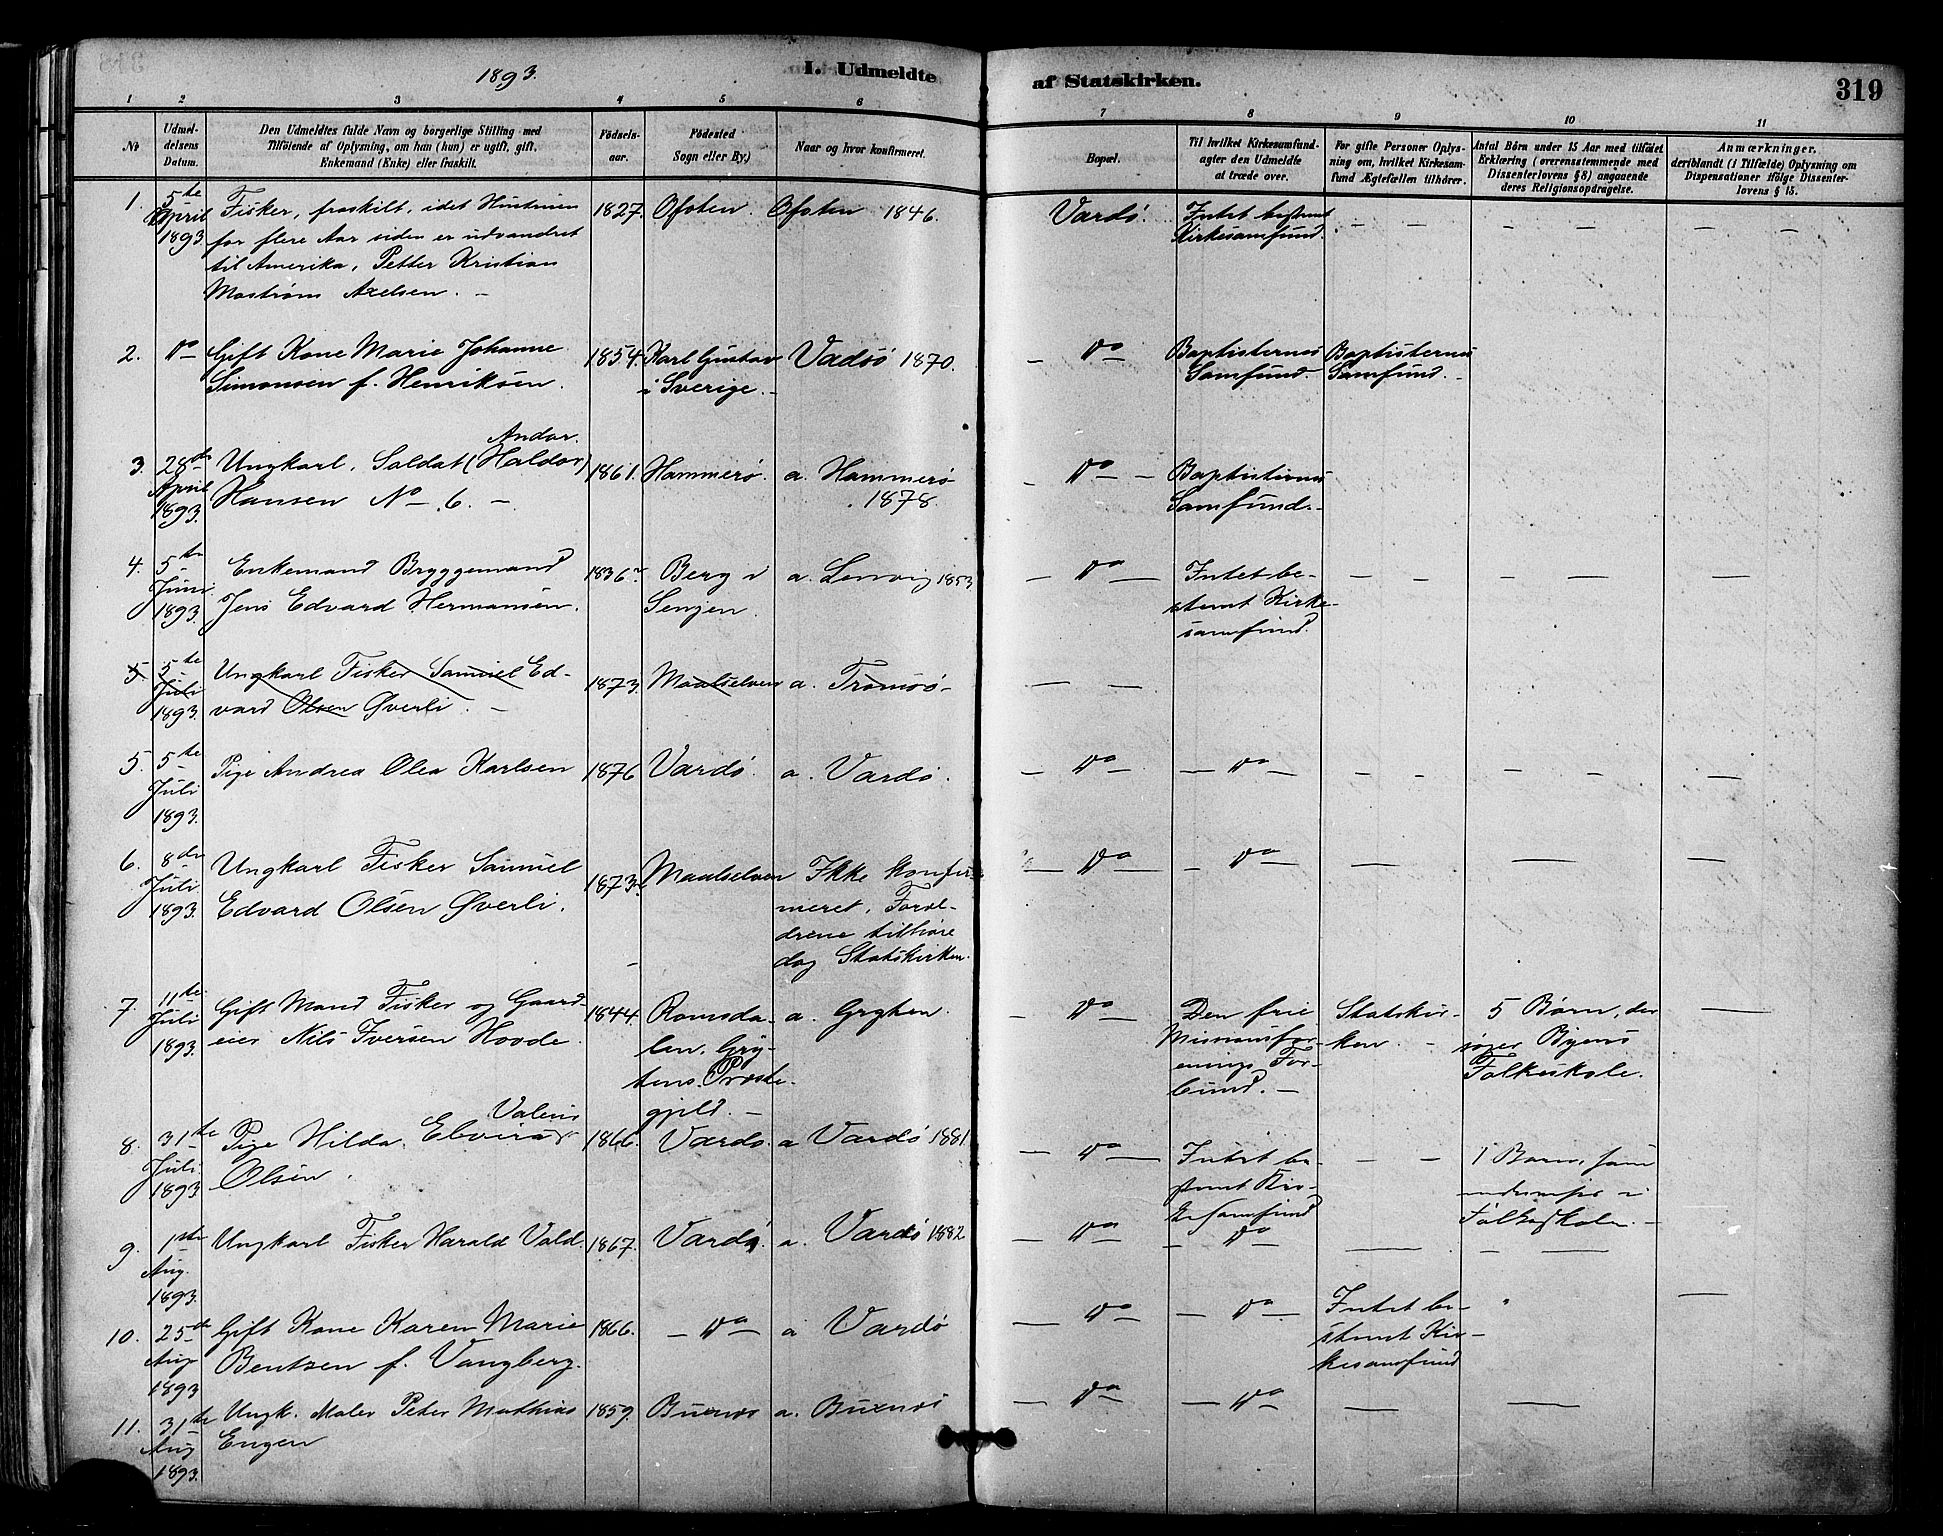 1893.
I. Udmeldte
af Statskirken.
319
1 2 3 4 5 6 7 8 9 10 11
No
Udmel-
delsens
Datum.
Den Udmeldtes fulde Navn og borgerlige Stilling med
Tilföiende af Oplysning, om han (hun) er ugift, gift,
Enkemand (Enke) eller fraskilt.
Födsels-
aar.
Födested
Sogn eller By.)
Naar og hvor konfirmeret.
Bopæl.
Til hvilket Kirkesamfund
agter den Udmeldte
at træde over.
For gifte Personer Oplys-
ning om, hvilket Kirkesam-
fund Ægtefællen tilhörer.
Antal Börn under 15 Aar med tilföiet
Erklæring (overensstemmende med
Dissenterlovens § 8) angaaende
deres Religionsopdragelse.
Anmærkninger,
deriblandt (i Tilfælde) Oplysning om
Dispensationer ifölge Dissenter-
lovens § 15.
1. 5te April 1893
Fisker, fraskilt, idet Hustruen
for flere Aar siden er udvandret
til Amerika, Petter Kristian
Mostrøm Axelsen. -
1827. Ofoten. Ofoten 1846.
Vardö. Intet bestemt
Kirkesamfund. — — — — — —
2. Do Gift Kone Marie Johanne
Simonsen f. Henriksen.
1854. Karl Gustav
i Sverige. -
Vadsö 1870.
— Do — Baptisternes
Samfund. Baptisternes
Samfund. -
3. 28de April 1893.
Andor.
Ungkarl, Soldat (Haldor)
Hansen No 6. -
1861. Hammerö. a. Hammerö
1878.
— Do — Baptisternes
Samfund. -
4. 5te Juni 1893.
Enkemand Bryggemand
Jens Edvard Hermansen.
1836 Berg i
Senjen.
a. Lenvig 1853
— Do — Intet be-
stemt Kirke-
samfund. — — — — — —
5. 5te Juli 1893.
Ungkarl Fisker Samuel Ed-
vard Olsen Øverli. -
1873. Maalselven a. Tromsö -
— —
5. 5te Juli 1893.
Pige Andrea Olea Karlsen
1876 Vardö. a. Vardö.
— Do — — Do — — — — — —
6. 8de Juli 1893.
Ungkarl Fisker Samuel
Edvard Olsen Øverli.
1873. Maalselven Ikke konfir-
meret. Foræl-
drene tilhöre
dog Statskirken.
— Do — — Do — — — —
7. 11te Juli 1893.
Gift Mand Fisker og Gaard-
eier Nils Iversen Hovde.
1844. Romsda-
len, Gry-
tens Præste-
gjeld. -
a. Gryten.
— Do — Den frie
Missionsfor-
enings For-
bund. -
Statskir-
ken. -
5 Börn, der
Byens
Folkeskole. —
8. 31te Juli 1893
Pige Hilda Elvira
Olsen.
1866. Vardö. a Vardö 1881.
— Do — Intet be-
stemt Kir-
kesamfund
— — 1 Barn, som
undervises i
Folkeskolen. -
9. 1ste Aug. 1893.
Ungkarl Fisker Harald Vold.
1867. Vardö. a. Vardö 1882
— Do — - Do — — —
10. 25de Aug 1893
Gift Kone Karen Marie
Bentzen f. Vangberg.
1866. — Do — a Vardö
— Do — — Do — Intet be-
stemt Kir-
kesamfund —
11. 31te Aug 1893.
Ungk. Maler Peter Mathias
Engen
1859. Buxnes a. Buxnes
— Do — — Do — — —